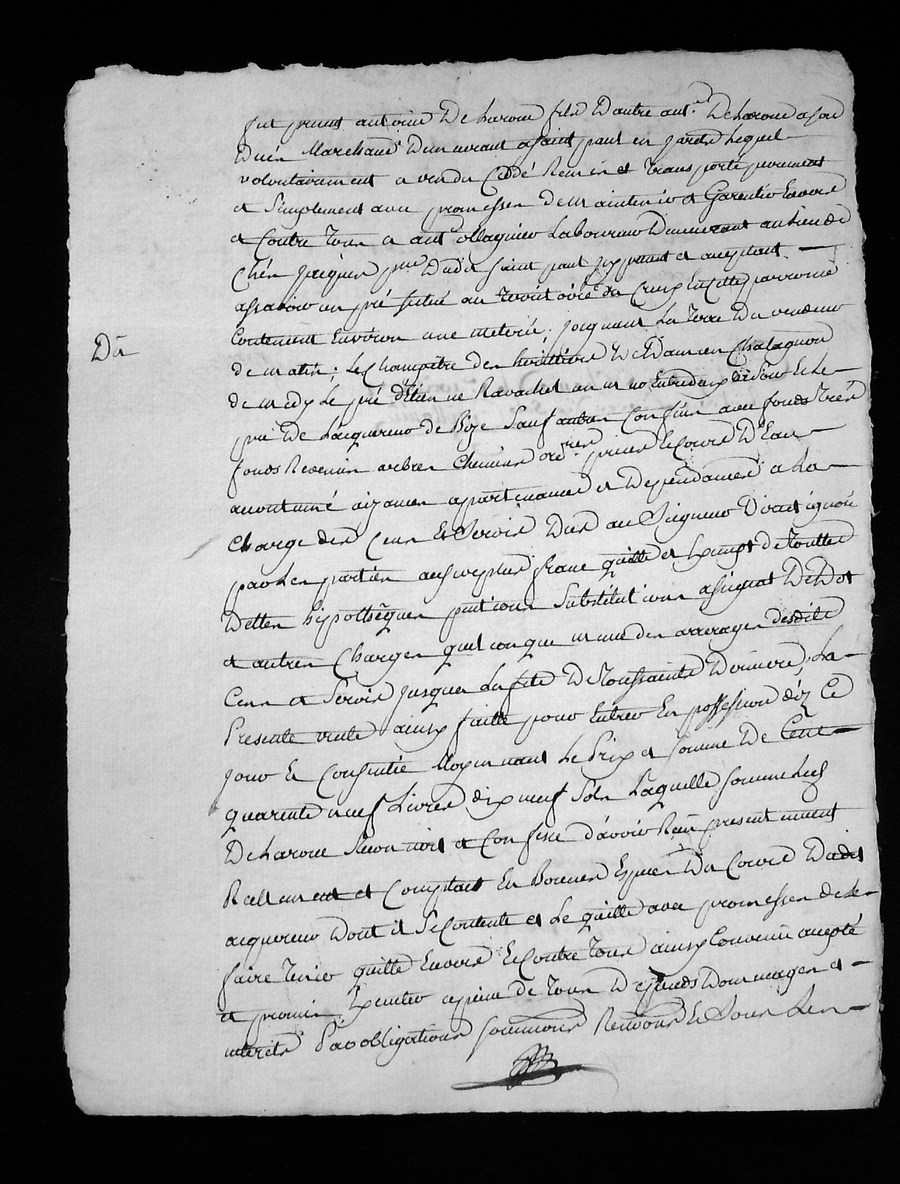 fut present antoine Decharome fils D'autre ant.e Decharome
Marchand Demeurant a saint paul en jarest Lequel
volontairement a vendu Ceddé Remis et transporté purement
et simplement avec promesses de maintenir et Garentir Envers
et Contre tous a ant ollagnier Laboureur Demeurant au lieu de
ché pre Dudit saint paul jcy present et acceptant
assavoir un pré situé au terroire du Creux
Contenant Environ une meterée joignant La terre Du vendeur
Dû
de matin; Le Champêtre des héritiers De Damien Chalagnon
de midy Le pré d'Etienne Ravachol un Entredeux de soir Et Le
pré De Lacquereur de Bize sauf autres Confins avec fonds très
fonds Revenus arbres Chemins prises Et Cours D'Eau
accoutumé aizances appartenances et Dependances a La
Charge des Cens Et Servis Dus au Seigneur
par Les parties franc quitte et Exempt de touttes
Dettes hipothêques pentions Substitutions assignat De Dot
et autres Charges quelconque même des arrerages desdits
Cens et Servis jusques La fête De Toussaints Derniere, La
Presente vente ainsy faitte pour Entrer En possession déz Ce
jour Et Consentie Moyennant Le Prix et somme De Cent
quarente neuf Livres dix neuf sols Laquelle somme Led
Decharome Reconnoit et Confesse d'avoir Reçu presentement
Reellement et Comptant En Bonnes Espèces Du Cours Dudit
acquereur Dont il Se Contente et Le quitte avec promesses de Le
faire tenir quitte Envers Et Contre tous ainsy Convenu accepté
et promis Executer a peine de tous Depends Dommages et
interets Par obligations soumissions Renons Et sous Les